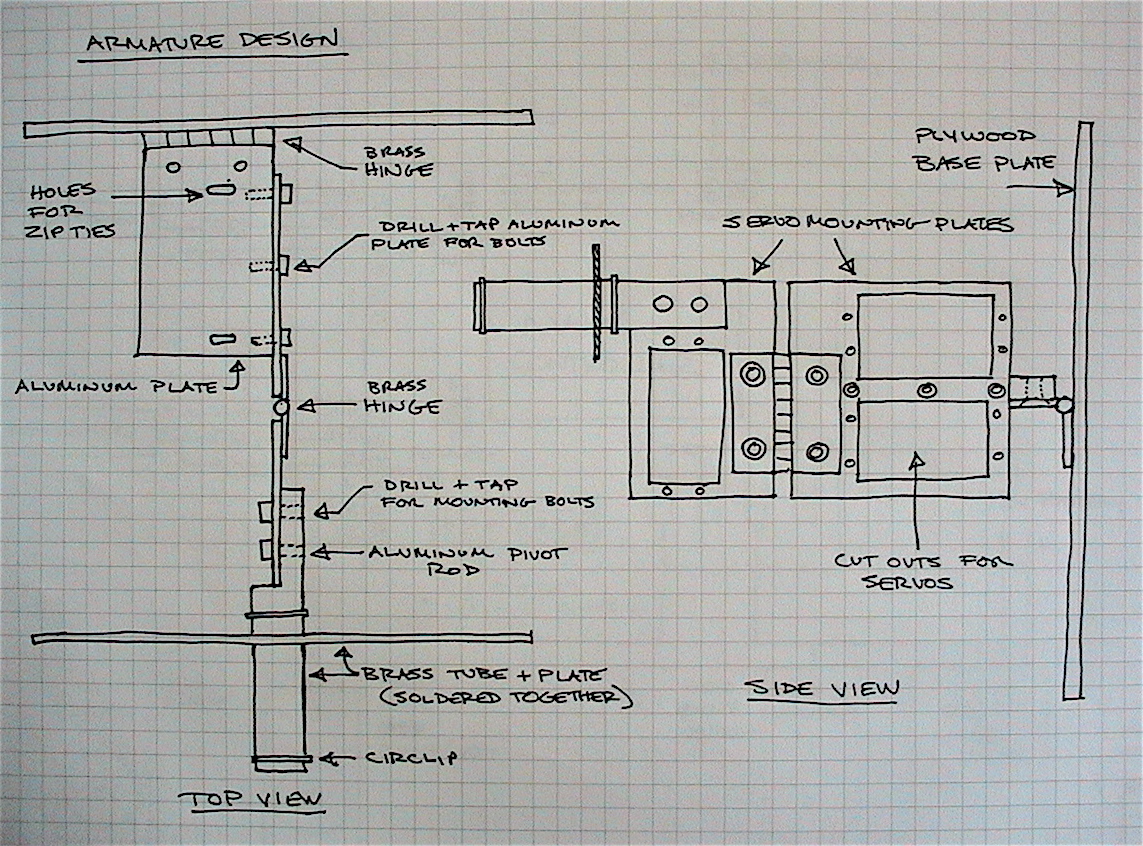 ARMATURE DESIGN
BRASS
HINGE
HOLES
FOR
ZIP TIES
DRILL + TAP ALUMINUM
PLATE FOR BOLTS
ALUMINUM PLATE
BRASS
HINGE
DRILL + TAP
FOR MOUNTING BOLTS
ALUMINUM PIVOT
ROD
BRASS TUBE + PLATE
(SOLDERED TOGETHER)
CIRCLIP
TOP VIEW
PLYWOOD
BASE PLATE
SERVO MOUNTING PLATES
CUT OUTS FOR
SERVOS
SIDE VIEW